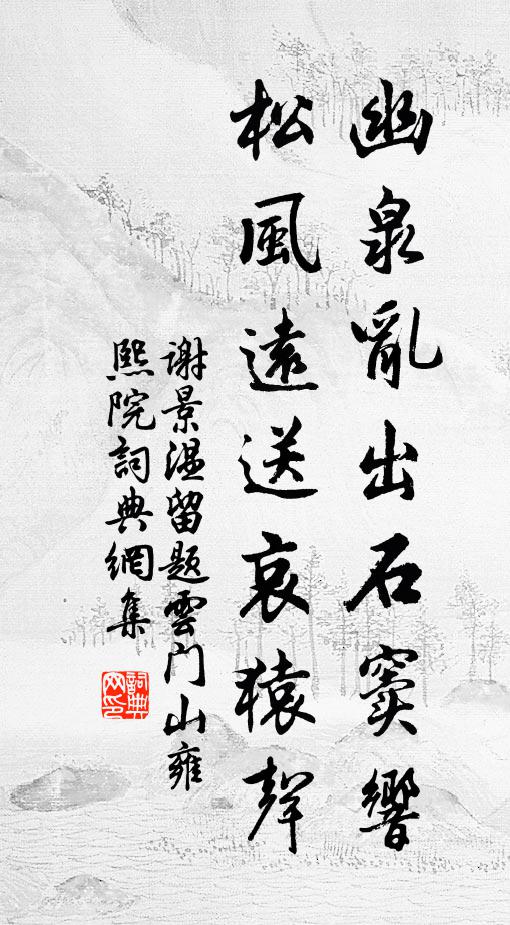 幽泉亂出石竇響
松風遠送哀猿聲
谢景温留题雲门山雍
熙院詞典網集
詞典
网印